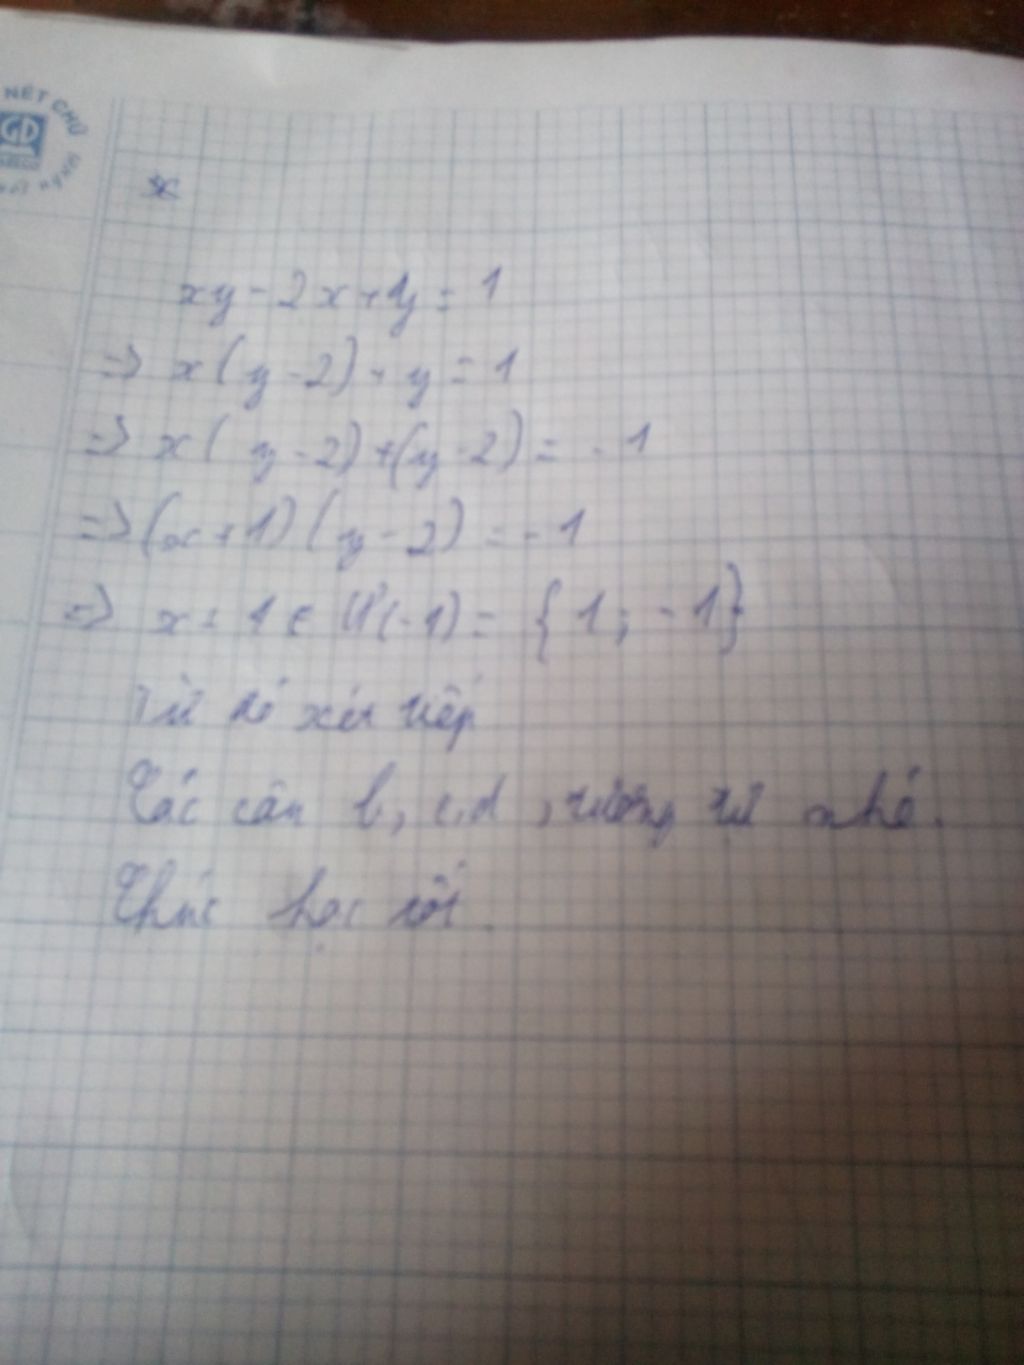 NÉT CHỮ
GD
xy - 2x + y = 1
=> x(y-2) + y = 1
=> x( y-2) +(y-2) = -1
=> (x+1) (y-2) = -1
=> x+1 ∈ Ư(-1) = {1; -1}
Từ đó xét tiếp
Các câu b, c, d, tương tự nhé.
Chúc học tốt.